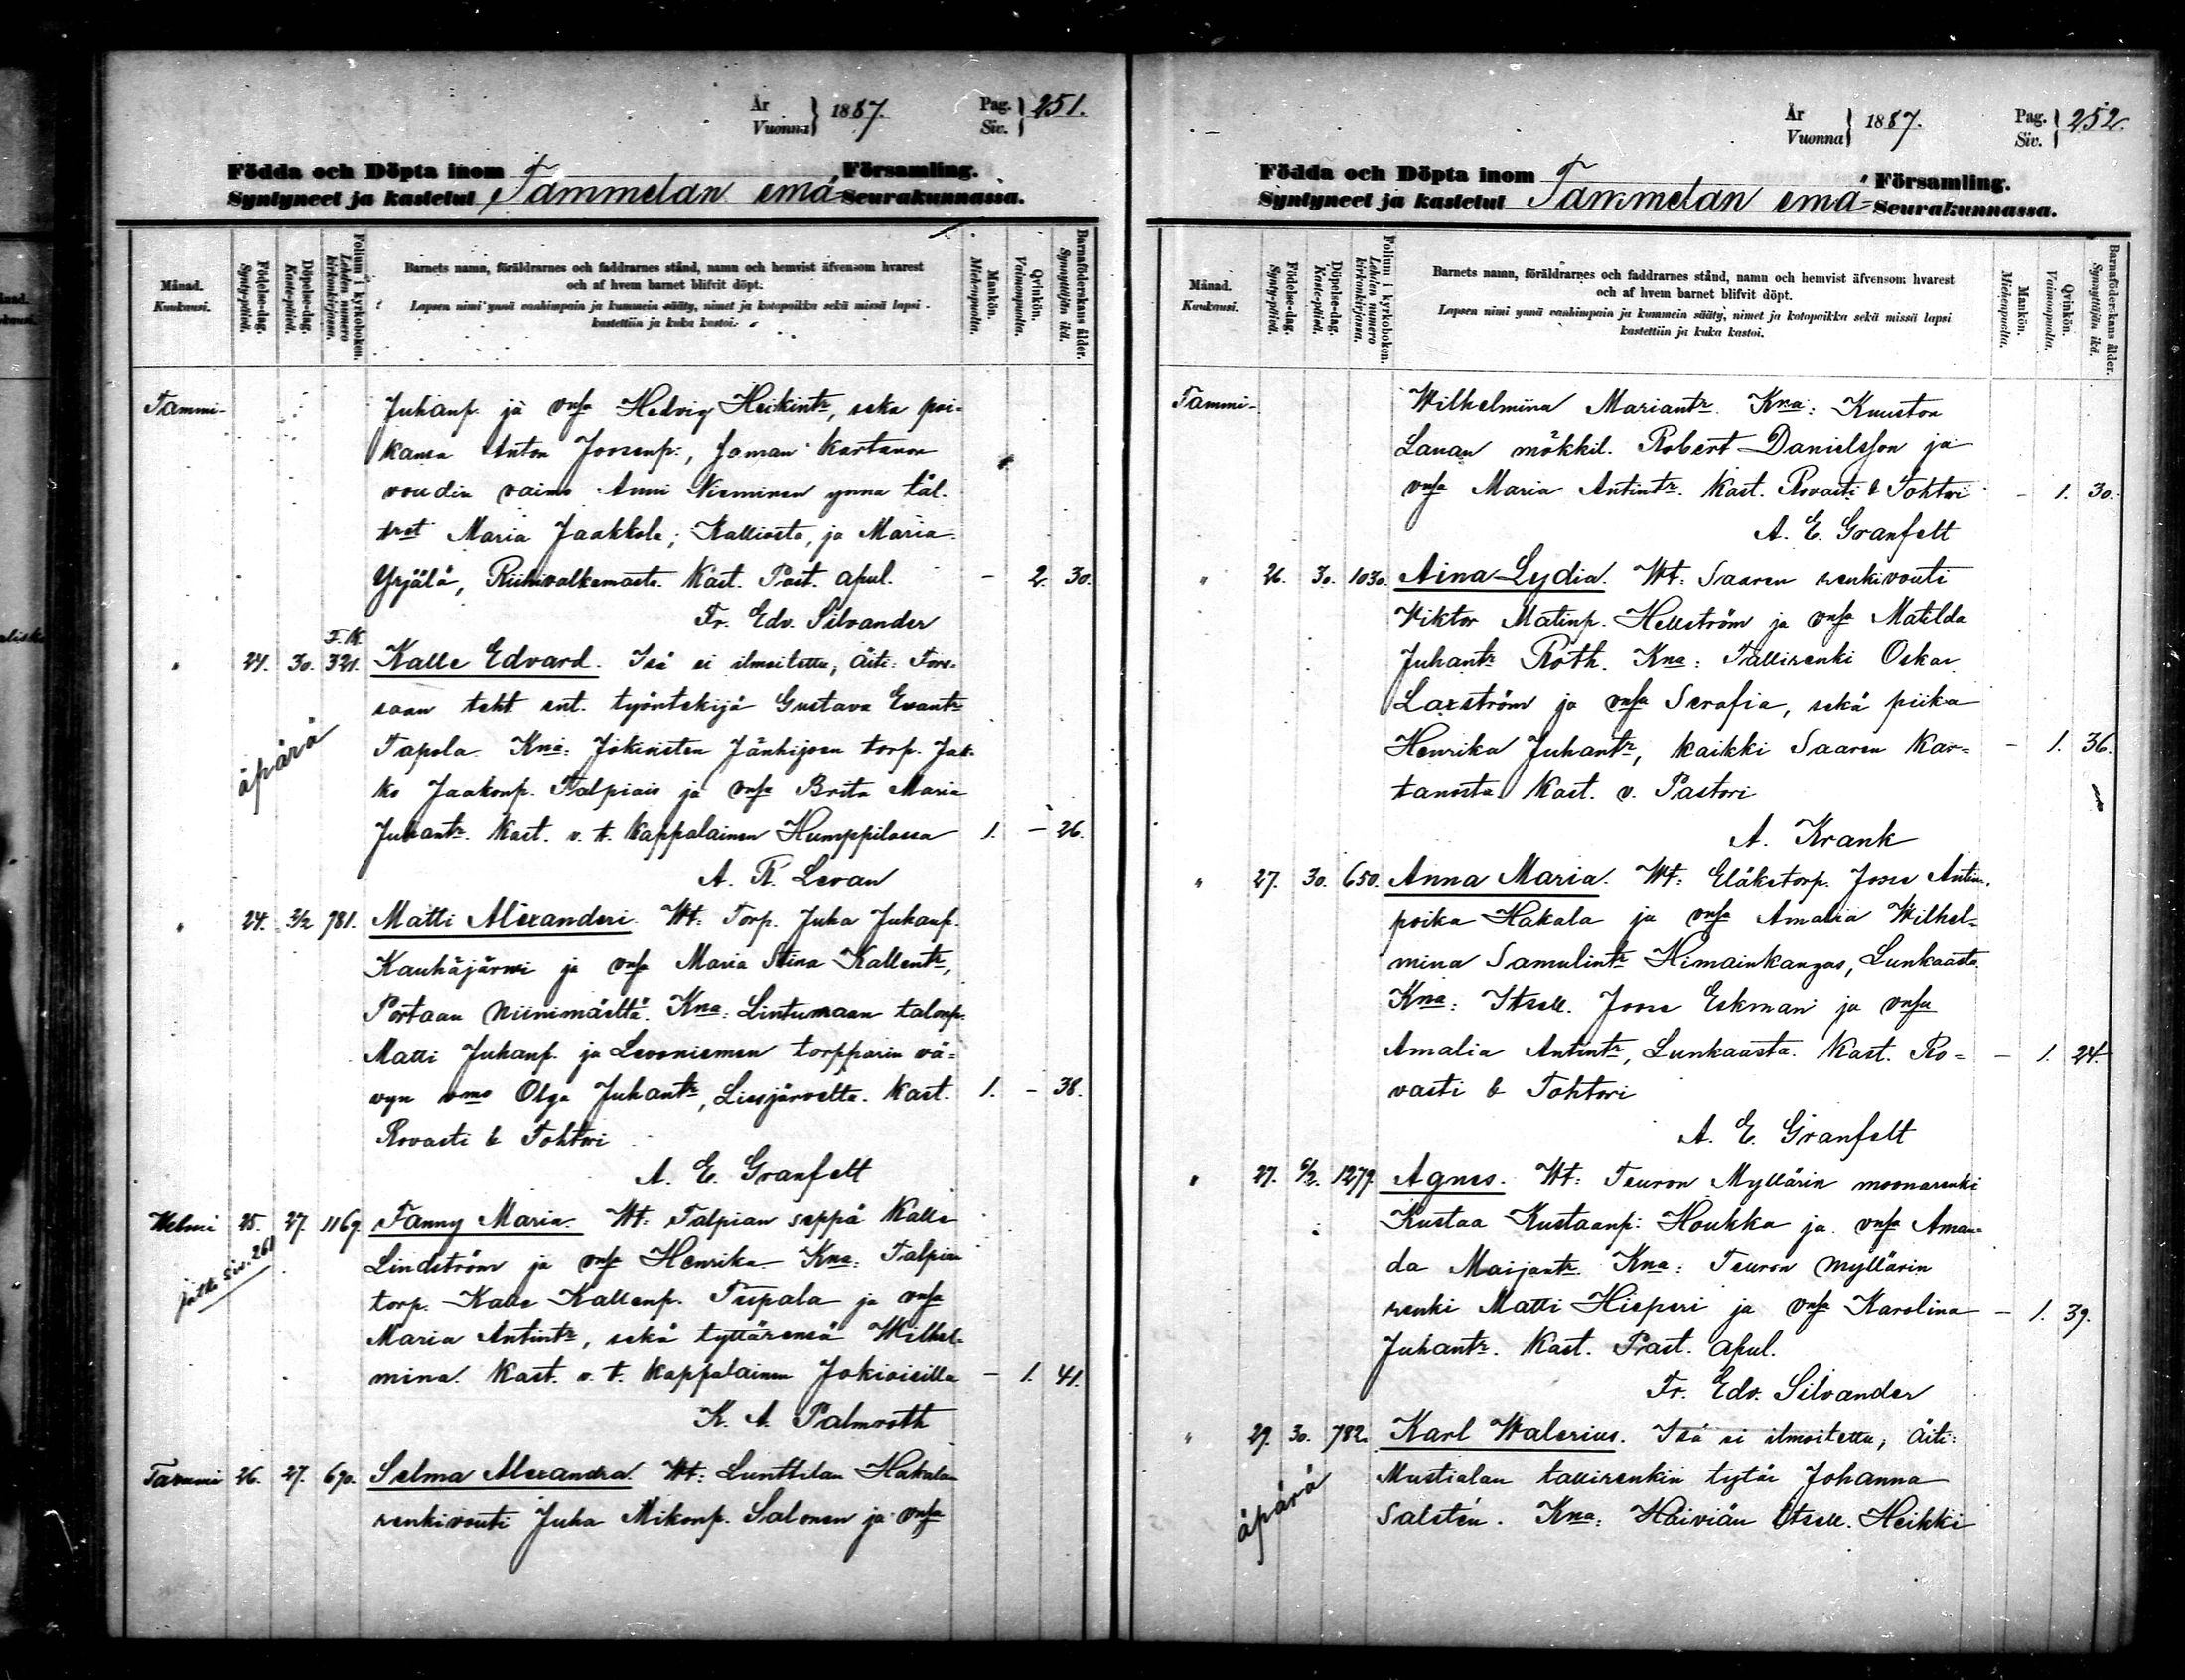 År
Vuonna } 1887.
Pag.
Siv. } 251.
Födda och Döpta inom Församling.
Syntyneet ja kastetut Tammelan emä- Seurakunnassa.
Månad.
Kuukausi.
Födelse-dag.
Synty-päivä.
Döpelse-dag.
Kaste-päivä.
Folium i kyrkoboken.
Lehden numero kirkonkirjassa.
Barnets namn, föräldrarnes och faddrarnes stånd, namn och hemvist äfvensom hvarest
och af hvem barnet blifvit döpt.
Lapsen nimi ynnä vanhimpain ja kummein sääty, nimet ja kotopaikka sekä missä lapsi
kastettiin ja kuka kastoi.
Mankön.
Miehenpuolia.
Qvinkön.
Vaimonpuolia.
Barnaföderskans ålder.
Synnyttäjän ikä.
Tammi- Juhanp. ja vnsa Hedvig Heikintr, seka poi-
kansa Anton Joosenp:, Joman kartanon
voudin vaimo Anni Nieminen ynna täl.
tret Maria Jaakkola; Kalliosta, ja Maria
Yrjälä, Riihivalkemasta. Kast. Past. apul. - 2. 30.
Fr. Edv. Silvander
F. K.
" 24. 30. 321. Kalle Edvard. Isä ei ilmoitettu, äiti: Fors-
saan teht. ent. työntekijä Gustava Evantr
Tapola. Kna: Jokioisten Jänhijoen torp. Jak-
äpärä
ko Jaakonp. Talpiais ja vnsa Brita Maria
Juhantr. Kast. v. t. Kappalainen Humppilassa 1. - 26.
A. R. Levan
" 24. 2/2 781. Matti Alexanderi. Wt: Torp. Juha Juhanp.
Kauhajärwi ja vnsa Maria Stina Kallentr,
Portaan Niinimäeltä. Kna: Lintumaan talonp.
Matti Juhanp. ja Levoniemen torpparin vä-
vyn vmo Olga Juhantr, Liesjärveltä. Kast. 1. - 38.
Rovasti & Tohtori
A. E. Granfelt
Helmi 25. 27. 1169. Fanny Maria. Wt: Talpian seppä Kalle
jatko siv. 261
Lindström ja vnsa Henrika. Kna: Talpian
torp. Kalle Kallenp. Tupala ja vnsa
Maria Antintr, sekä tyttärensä Wilhel-
mina. Kast. v. t. Kappalainen Jokioisilla - 1. 41.
K. A. Palmroth
Tammi 26. 27. 690. Selma Alexandra. Wt: Lunttilan Hakalan
renkivouti Juha Mikonp. Salonen ja vnsa
År
Vuonna } 1887.
Pag.
Siv. } 252.
Födda och Döpta inom Församling.
Syntyneet ja kastetut Tammelan emä- Seurakunnassa.
Månad.
Kuukausi.
Födelse-dag.
Synty-päivä.
Döpelse-dag.
Kaste-päivä.
Folium i kyrkoboken.
Lehden numero kirkonkirjassa.
Barnets namn, föräldrarnes och faddrarnes stånd, namn och hemvist äfvensom hvarest
och af hvem barnet blifvit döpt.
Lapsen nimi ynnä vanhimpain ja kummein sääty, nimet ja kotopaikka sekä missä lapsi
kastettiin ja kuka kastoi.
Mankön.
Miehenpuolia.
Qvinkön.
Vaimonpuolia.
Barnaföderskans ålder.
Synnyttäjän ikä.
Tammi- Wilhelmiina Mariantr. Kna: Kuuston
Lauan mökkil. Robert Danielsson ja
vnsa Maria Antintr. Kast. Rovasti & Tohtori - 1. 30.
A. E. Granfelt
" 26. 30. 1030. Aina Lydia. Wt: Saaren renkivouti
Wiktor Matinp. Hellström ja vnsa Matilda
Juhantr Roth. Kna: Tallirenki Oskar
Laxström ja vnsa Serafia, sekä piika
Henrika Juhantr, kaikki Saaren kar- - 1. 36.
tanosta. Kast. v. Pastori
A. Krank
" 27. 30. 650. Anna Maria. Wt: Eläketorp. Joose Antin.
poika Hakala ja vnsa Amalia Wilhel-
mina Samulintr Himainkangas, Lunkaasta.
Kna: Itsell. Joose Eskman ja vnsa
Amalia Antintr, Lunkaasta. Kast. Ro- - 1. 24.
vasti & Tohtori
A. E. Granfelt
" 27. 6/2. 1279. Agnes. Wt: Teuron Myllärin moonarenki
Kustaa Kustaanp: Houkka ja vnsa Aman-
da Maijantr. Kna: Teuron Myllärin
renki Matti Hieperi ja vnsa Karolina - 1. 39.
Juhantr. Kast. Past. apul.
Fr. Edv. Silvander
" 29. 30. 782. Karl Walerius. Isä ei ilmoitettu, äiti:
äpärä
Mustialan tallirenkin tytär Johanna
Salstén. Kna: Haiviän Itsell. Heikki